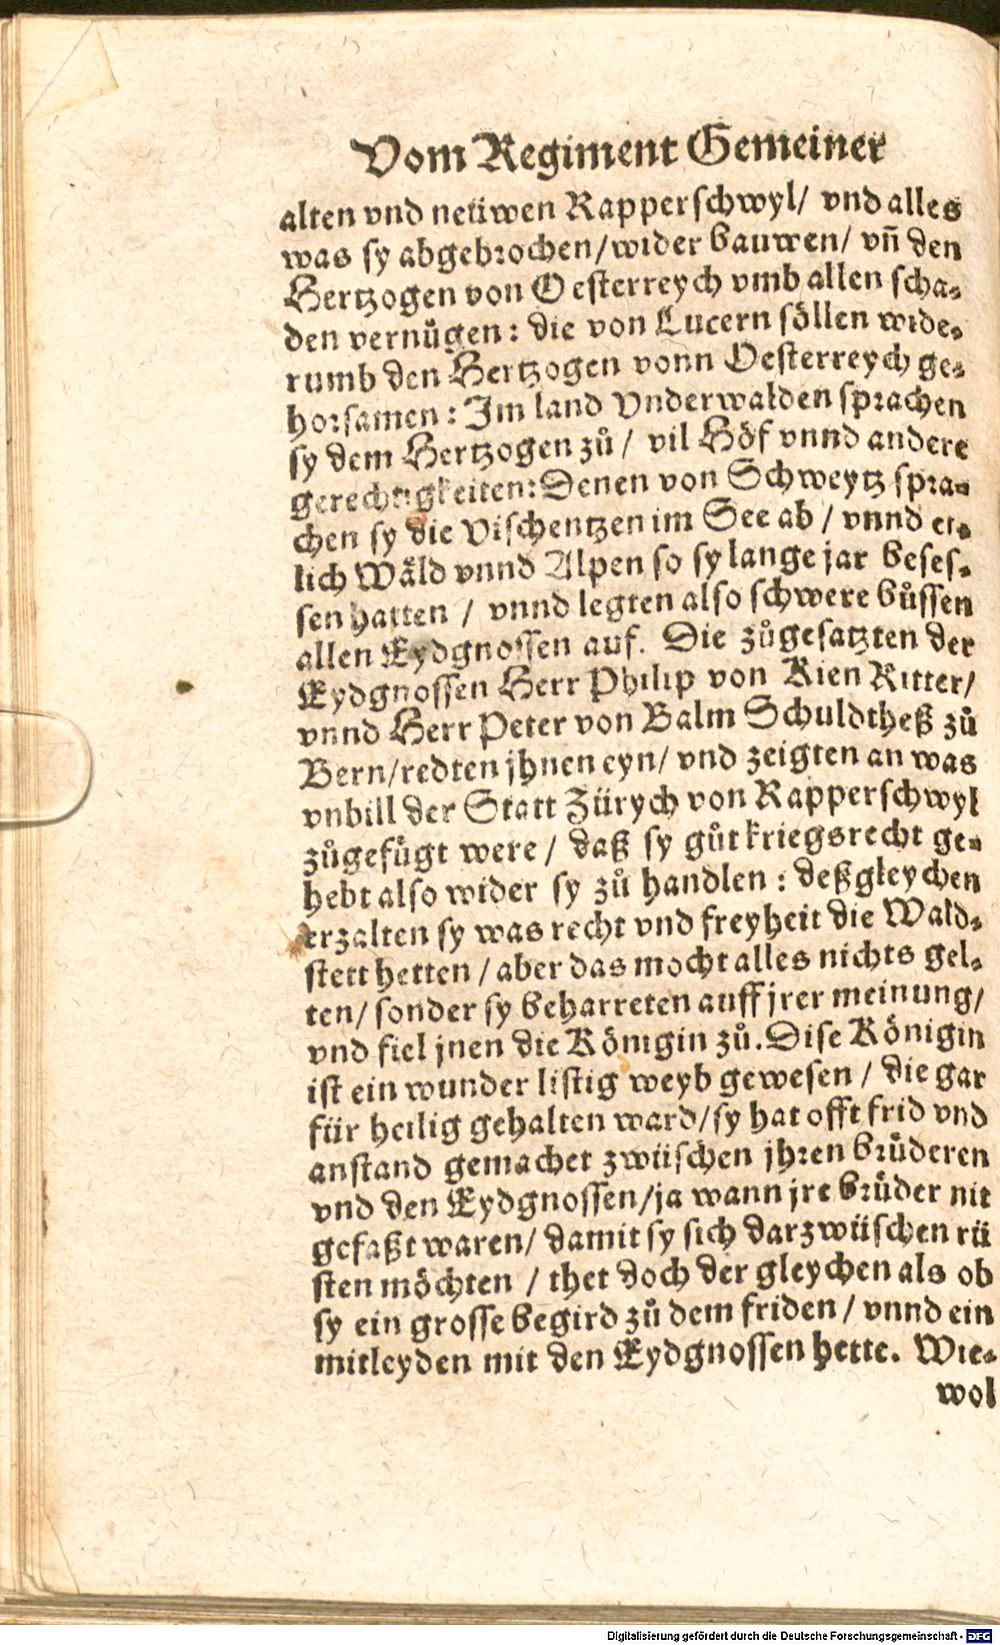 Vom Regiment Gemeiner
alten vnd neüwen Rapperschwyl/ vnd alles
was sy abgebrochen/wider bauwen/ vñ den
Hertzogen von Oesterreych vmb allen scha-
den vernuͤgen: die von Lucern soͤllen wide-
rumb den Hertzogen vonn Oesterreych ge-
horsamen: Im land Vnderwalden sprachen
sy dem Hertzogen zuͦ/ vil Hoͤf vnnd andere
gerechtigkeiten: Denen von Schweytz spra-
chen sy die Vischentzen im See ab/ vnnd et-
lich Waͤld vnnd Alpen so sy lange jar beses-
sen hatten/ vnnd legten also schwere buͦssen
allen Eydgnossen auf. Die zuͦgesatzten der
Eydgnossen Herr Philip von Kien Ritter/
vnnd Herr Peter von Balm Schuldtheß zuͦ
Bern/redten jhnen eyn/ vnd zeigten an was
vnbill der Statt Zürych von Rapperschwyl
zuͦgefuͤgt were/ daß sy guͦt kriegsrecht ge-
hebt also wider sy zuͦ handlen: deßgleychen
erzalten sy was recht vnd freyheit die Wald-
stett hetten/ aber das mocht alles nichts gel-
ten/ sonder sy beharreten auff jrer meinung/
vnd fiel jnen die Koͤnigin zuͦ. Dise Koͤnigin
ist ein wunder listig weyb gewesen/ die gar
für heilig gehalten ward/sy hat offt frid vnd
anstand gemachet zwüschen jhren bruͤderen
vnd den Eydgnossen/ja wann jre bruͤder nit
gefaßt waren/ damit sy sich darzwüschen rü
sten moͤchten/ thet doch der gleychen als ob
sy ein grosse begird zuͦ dem friden/ vnnd ein
mitleyden mit den Eydgnossen hette. Wie-
wol
Digitalisierung gefördert durch die Deutsche Forschungsgemeinschaft - DFG